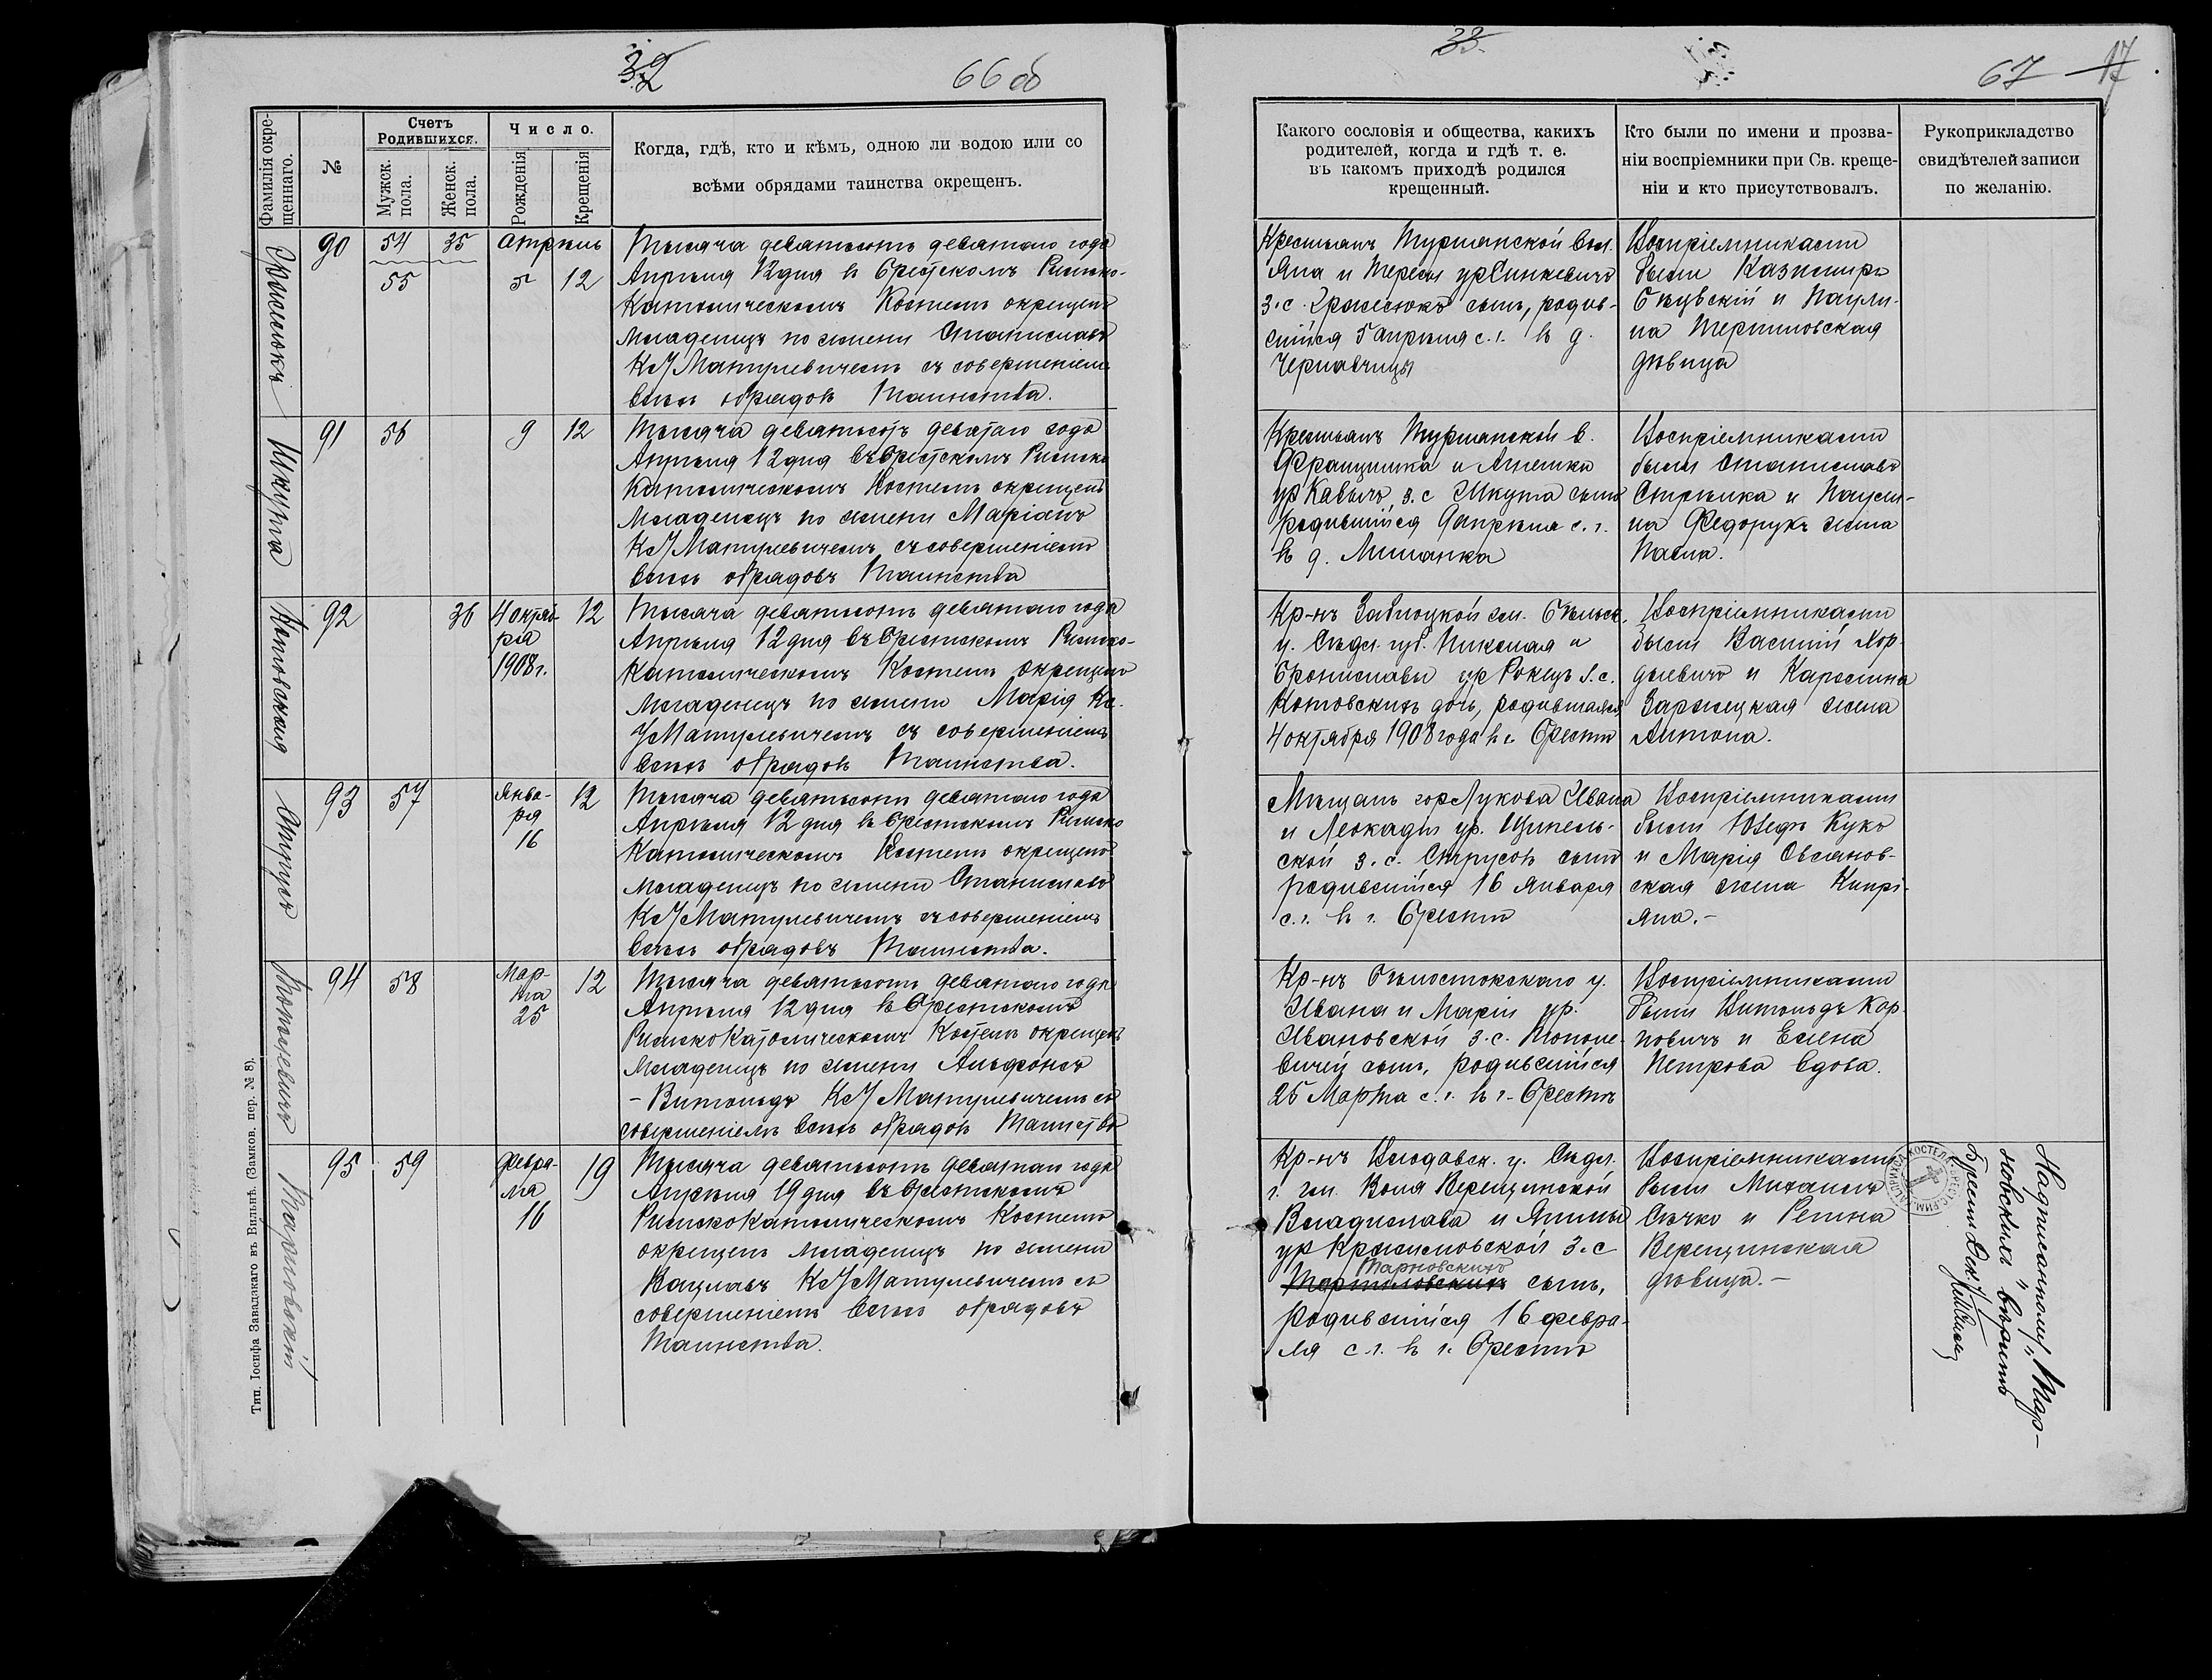 32
66 об
Фамилія окре-
щеннаго.
№
Счетъ
Родившихся.
Мужск.
пола.
Женск.
пола.
Число.
Рожденія
Крещенія
Когда, гдѣ, кто и кѣмъ, одною ли водою или со
всѣми обрядами таинства окрещенъ.
90
54
35
Апрѣль
55
5
12
Тысяча девятьсотъ девятаго года
Апрѣля 12 дня въ Брестскомъ Римско-
Католическомъ Костелѣ окрещенъ
младенецъ по имени Станиславъ
К У Матулевичемъ съ совершеніемъ
всѣхъ обрядовъ Таинства.
Шкута
91
56
9
12
Тысяча девятьсотъ девятаго года
Апрѣля 12 дня въ Брестскомъ Римско
Католическомъ Костелѣ окрещенъ
младенецъ по имени Маріанъ
К У Матулевичемъ съ совершеніемъ
всѣхъ обрядовъ Таинства
Котовская
92
36
4 октяб-
ря
1908 г.
12
Тысяча девятьсотъ девятаго года
Апрѣля 12 дня въ Брестскомъ Римско-
Католическомъ Костелѣ окрещенъ
младенецъ по имени Марія Кс.
У Матулевичемъ съ совершеніемъ
всѣхъ обрядовъ Таинства.
Струсъ
93
57
Янва-
ря
16
12
Тысяча девятьсотъ девятаго года
Апрѣля 12 дня въ Брестскомъ Римско
Католическомъ Костелѣ окрещенъ
младенецъ по имени Станиславъ
К У Матулевичемъ съ совершеніемъ
всѣхъ обрядовъ Таинства.
94
58
Мар-
та
25
12
Тысяча девятьсотъ девятаго года
Апрѣля 12 дня въ Брестскомъ
Римско Католическомъ Костелѣ окрещенъ
младенецъ по имени Альфонсъ
- Витольдъ К У Матулевичемъ съ
совершеніемъ всѣхъ обрядовъ Таинства
Тарновскій
95
59
Февра-
ля
16
19
Тысяча девятьсотъ девятаго года
Апрѣля 19 дня въ Брестскомъ
Римско Католическомъ Костелѣ
окрещенъ младенецъ по имени
Вацлавъ К У Матулевичемъ съ
совершеніемъ всѣхъ обрядовъ
Таинства.
Тип. Іосифа Завадзкаго въ Вильнѣ. (Замков. пер. № 8).
33.
67
17
Какого сословія и общества, какихъ
родителей, когда и гдѣ т. е.
въ какомъ приходѣ родился
крещенный.
Кто были по имени и прозва-
ніи воспріемники при Св. креще-
ніи и кто присутствовалъ.
Рукоприкладство
свидѣтелей записи
по желанію.
Крестьянъ Турнанской вол.
Яна и Терезы ур Синкевичъ
з. с. сынъ, родив-
шійся 5 апрѣля с. г. въ д.
Чернавчицы
Воспріемниками
были Казимиръ
и Паули-
на
дѣвица
Крестьянъ Турнанской в.
Францишка и Агнешки
ур з. с Шкута сынъ
родившійся 9 апрѣля с. г.
въ д.
Воспріемниками
были Станиславъ
и Паули-
на Федорукъ жена
Павла.
Кр-нъ Заблоцкой гм. Бѣльск.
у. Сѣдл. губ. Николая и
Брониславы ур з. с.
Котовскихъ дочь, родившаяся
4 октября 1908 года въ г. Брестѣ
Воспріемниками
были Василій Хор-
и Каролина
Заржецкая жена
Антона.
Мѣщанъ гор Лукова Ивана
и Леокадіи ур.
ской з. с. Струсовъ сынъ
родившійся 16 января
с. г. въ г. Брестѣ
Воспріемниками
были Юзефъ Кукъ
и Марія Овсянов-
ская жена Кипрі-
яна.-
Кр-нъ Бѣлостокскаго у.
Ивана и Маріи ур.
Ивановской з. с.
вичей сынъ, родившійся
25 Марта с. г. въ г. Брестѣ
Воспріемниками
были Витольдъ Кар-
повичъ и Елена
Петрова вдова.
Кр-нъ Влодавск. у. Сѣдл.
г. гм. Воля Верещинской
Владислава и Янины
ур з. с
Тарновскихъ
сынъ,
родившійся 16 февра-
ля с. г. въ г. Брестѣ
Воспріемниками
были Михаилъ
Сѣчко и Регина
Верещинская
дѣвица.-
Надписанному „Тар-
новскихъ" вѣрить
Брест. Дек.